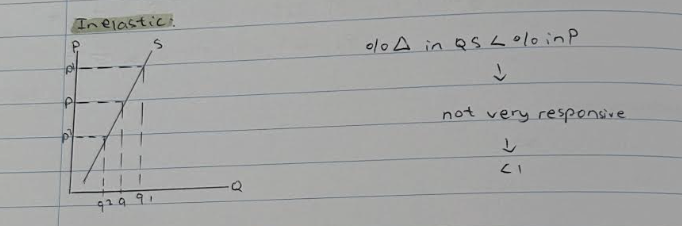 Inelastic:
P
S
P¹
P
P²
q2 q q1
Q
%Δ in QS < % in P
↓
not very responsive
↓
<1